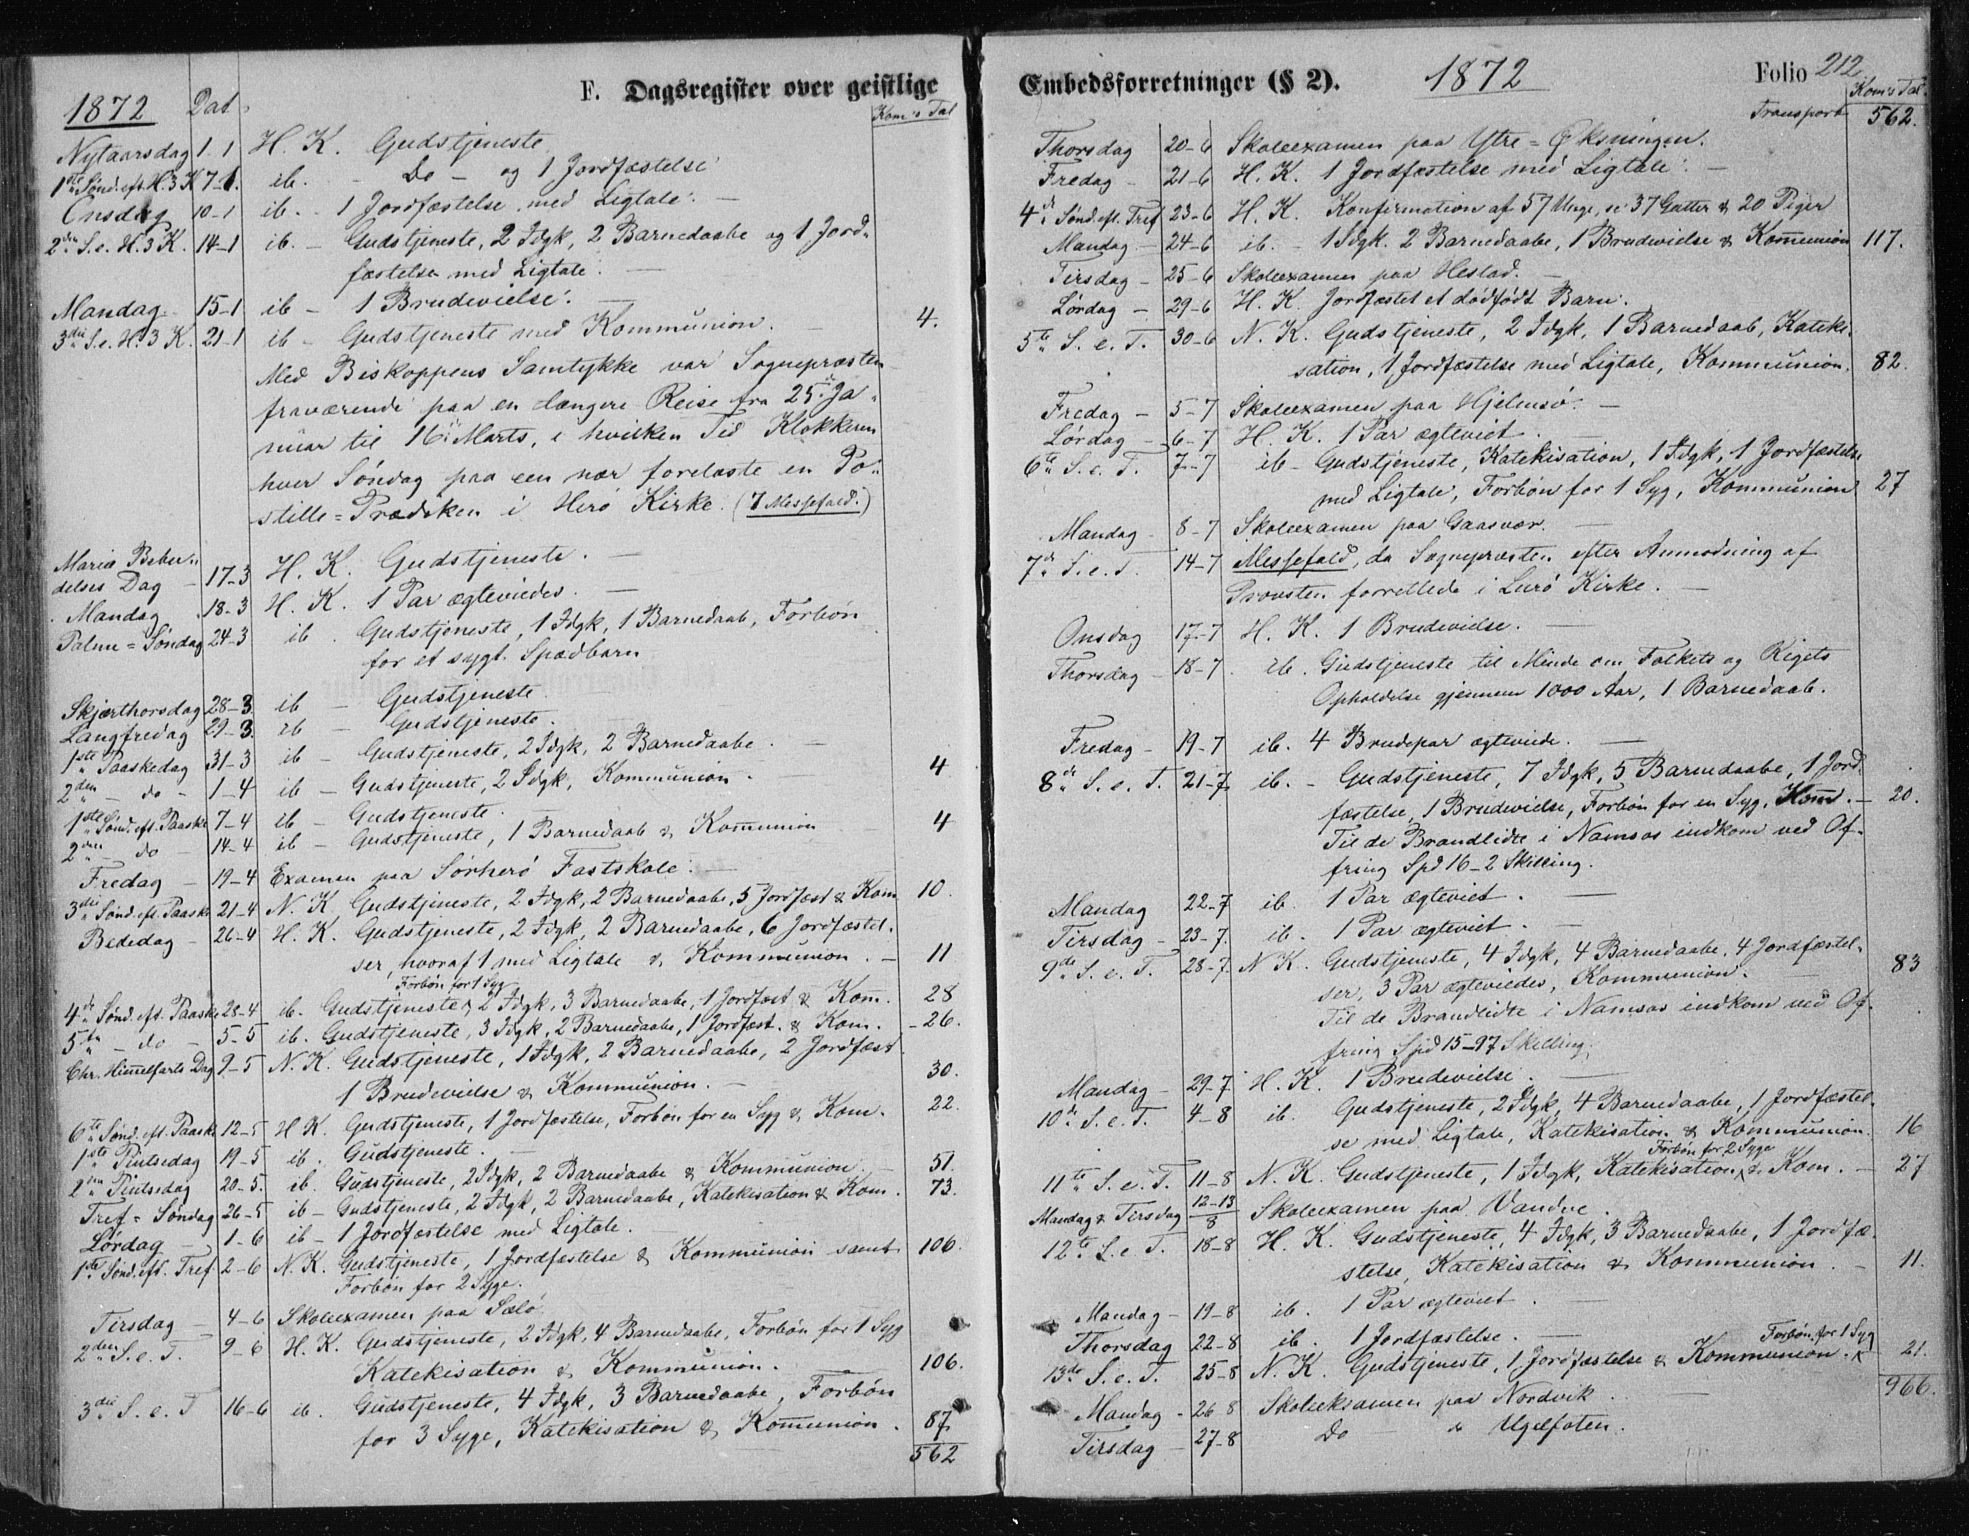 F. Dagsregister over geistlige
1872 Dat. Kom's Tal
Nytaarsdag 1-1 H. K. Gudstjeneste
1ste Sønd. eft. H. 3 K 7-1. ib. - Do - og 1 Jordfæstelse
Onsdag 10-1 ib. - 1 Jordfæstelse med Ligtale. -
2den S. e. H. 3 K. 14-1 ib. - Gudstjeneste, 2 Idgk, 2 Barnedaabe og 1 Jord-
fæstelse med Ligtale. -
Mandag - 15-1 ib - 1 Brudevielse. -
3die S. e. H. 3 K. 21-1 ib - Gudstjeneste med Kommunion. - 4.
Med Biskoppens Samtykke var Sognepræsten
fraværende paa en længere Reise fra 25de Ja-
nuar til 16de Marts, i hvilken Tid Klokkeren
hver Søndag paa een nær forelæste en Po-
stille=Prædiken i Herø Kirke. (7 Messefald.)
Mariæ Bebu-
delses Dag - 17-3 H. K. Gudstjeneste. -
Mandag 18-3 H. K. 1 Par ægteviedes. -
Palme=Søndag 24-3 ib. Gudstjeneste, 1 Idgk, 1 Barnedaab, Forbøn
for et sygt Spædbarn
Skjærthorsdag 28-3 ib - Gudstjeneste.
Langfredag 29-3. ib - Gudstjeneste.
1ste Paaskedag 31-3 ib - Gudstjeneste, 2 Idgk, 2 Barnedaabe. -
2den - do - 1-4 ib - Gudstjeneste, 2 Idgk, Kommunion. 4
1ste Sønd. eft. Paaske 7-4 ib - Gudstjeneste.
2den - do - 14-4 ib - Gudstjeneste, 1 Barnedaab & Kommunion 4
Fredag - 19-4 Examen paa Sørherø Fastskole. -
3die Sønd. eft. Paaske 21-4 N. K. Gudstjeneste, 2 Idgk, 2 Barnedaabe, 5 Jordfæst & Kom 10.
Bededag - 26-4 H. K. Gudstjeneste, 2 Idgk, 2 Barnedaabe, 6 Jordfæstel-
ser, hvoraf 1 med Ligtale & Kommunion. - 11
Forbøn for 1 Syg
4de Sønd. eft. Paaske 28-4 ib. Gudstjeneste, 2 Idgk, 3 Barnedaabe, 1 Jordfæst & Kom. 28
5te - do - 5-5 ib. Gudstjeneste, 3 Idgk, 2 Barnedaabe, 1 Jordfæst. & Kom. - 26.
Chr. Himmelfarts Dag 9-5 N. K. Gudstjeneste, 1 Idgk, 2 Barnedaabe, 2 Jordfæst
1 Brudevielse & Kommunion. - 30.
6te Sønd. eft. Paaske 12-5 H K. Gudstjeneste, 1 Jordfæstelse, Forbøn for en Syg & Kom. 22.
1ste Pintsedag 19-5 ib. Gudstjeneste.
2den Pintsedag 20-5. ib. Gudstjeneste, 2 Idgk, 2 Barnedaabe & Kommunion. - 51.
Tref=Søndag 26-5 ib - Gudstjeneste, 2 Idgk, 2 Barnedaabe, Katekisation & Kom. 73.
Lørdag - 1-6 ib - 1 Jordfæstelse med Ligtale.
1ste Sønd. eft. Tref 2-6 N. K. Gudstjeneste, 1 Jordfæstelse & Kommunion samt 106.
Forbøn for 2 Syge.
Tirsdag - 4-6 Skoleexamen paa Sælø.
2den S. e. T. 9-6 H. K. Gudstjeneste, 2 Idgk, 4 Barnedaabe, Forbøn for 1 Syg
Katekisation & Kommunion. - 106.
3die S. e. T 16-6 ib. Gudstjeneste, 4 Idgk, 3 Barnedaabe, Forbøn
for 3 Syge, Katekisation & Kommunion. 87
562
Embedsforretninger (§ 2). 1872 Folio 212
Kom's Tal.
Transport 562.
Thorsdag 20-6 Skoleexamen paa Ytre=Øksningen.
Fredag - 21-6 H. K. 1 Jordfæstelse med Ligtale. -
4de Sønd. eft. Tref 23-6 H. K. Konfirmation af 57 Unge, n: 37 Gutter & 20 Piger
Mandag - 24-6 ib. - 1 Idgk. 2 Barnedaabe, 1 Brudevielse & Kommunion 117.
Tirsdag - 25-6 Skoleexamen paa Hestad. -
Lørdag - 29-6 H. K Jordfæstet et dødfødt Barn.
5te S. e. T. 30-6 N. K. Gudstjeneste, 2 Idgk, 1 Barnedaab, Kateki-
sation, 1 Jordfæstelse med Ligtale, Kommunion. 82.
Fredag - 5-7 Skoleexamen paa Hjelmsø. -
Lørdag - 6-7 H. K. 1 Par ægteviet.
6te S. e. T. 7-7 ib - Gudstjeneste, Katekisation, 1 Idgk, 1 Jordfæstelse
med Ligtale, Forbøn for 1 Syg, Kommunion 27
Mandag - 8-7 Skoleexamen paa Gaasvær. -
7de S. e. T. 14-7 Messefald, da Sognepræsten efter Anmodning af
Provsten forrettede i Lurø Kirke. -
Onsdag 17-7 H. K. 1 Brudevielse. -
Thorsdag - 18-7. ib. Gudstjeneste til Minde om Folkets og Rigets
Opholdelse gjennem 1000 Aar, 1 Barnedaab.
Fredag - 19-7 ib. 4 Brudepar ægteviede. -
8de S. e. T. 21-7 ib. - Gudstjeneste, 7 Idgk, 5 Barnedaabe, 1 Jord-
fæstelse, 1 Brudevielse, Forbøn for en Syg, Kom. - 20.
Til de Brandlidte i Namsos indkom ved Of-
fring Spd 16-2 Skilling.
Mandag 22-7 ib. 1 Par ægteviet. -
Tirsdag - 23-7. ib. 1 Par ægteviet. -
9de S. e. T. 28-7. N K. Gudstjeneste, 4 Idgk, 4 Barnedaabe, 4 Jordfæstel-
ser, 3 Par ægteviedes, Kommunion. - 83
Til de Brandlidte i Namsos indkom ved Of-
fring Spd 15-97 Skilling.
Mandag - 29-7 H. K. 1 Brudevielse. -
10de S. e. T. 4-8 ib. Gudstjeneste, 2 Idgk, 4 Barnedaabe, 1 Jordfæstel-
se med Ligtale, Katekisation & Kommunion. 16
Forbøn for 2 Syge
11te S. e. T. 11-8 N. K. Gudstjeneste, 1 Idgk, Katekisation, & Kom. - 27
Mandag & Tirsdag 12-13/8 Skoleexamen paa Vandve.
12te S. e. T. 18-8 H. K. Gudstjeneste, 4 Idgk, 3 Barnedaabe, 1 Jordfæ-
stelse, Katekisation & Kommunion. - 11.
Mandag - 19-8 ib. 1 Par ægteviet. -
Thorsdag 22-8 ib. 1 Jordfæstelse. - Forbøn for 1 Syg
13de S. e. T. 25-8 N. K. Gudstjeneste, 1 Jordfæstelse & Kommunion. 21.
966.
Mandag - 26 8 Skoleeksamen paa Nordvik. -
Tirsdag - 27-8 Do - " Ugelfoten.